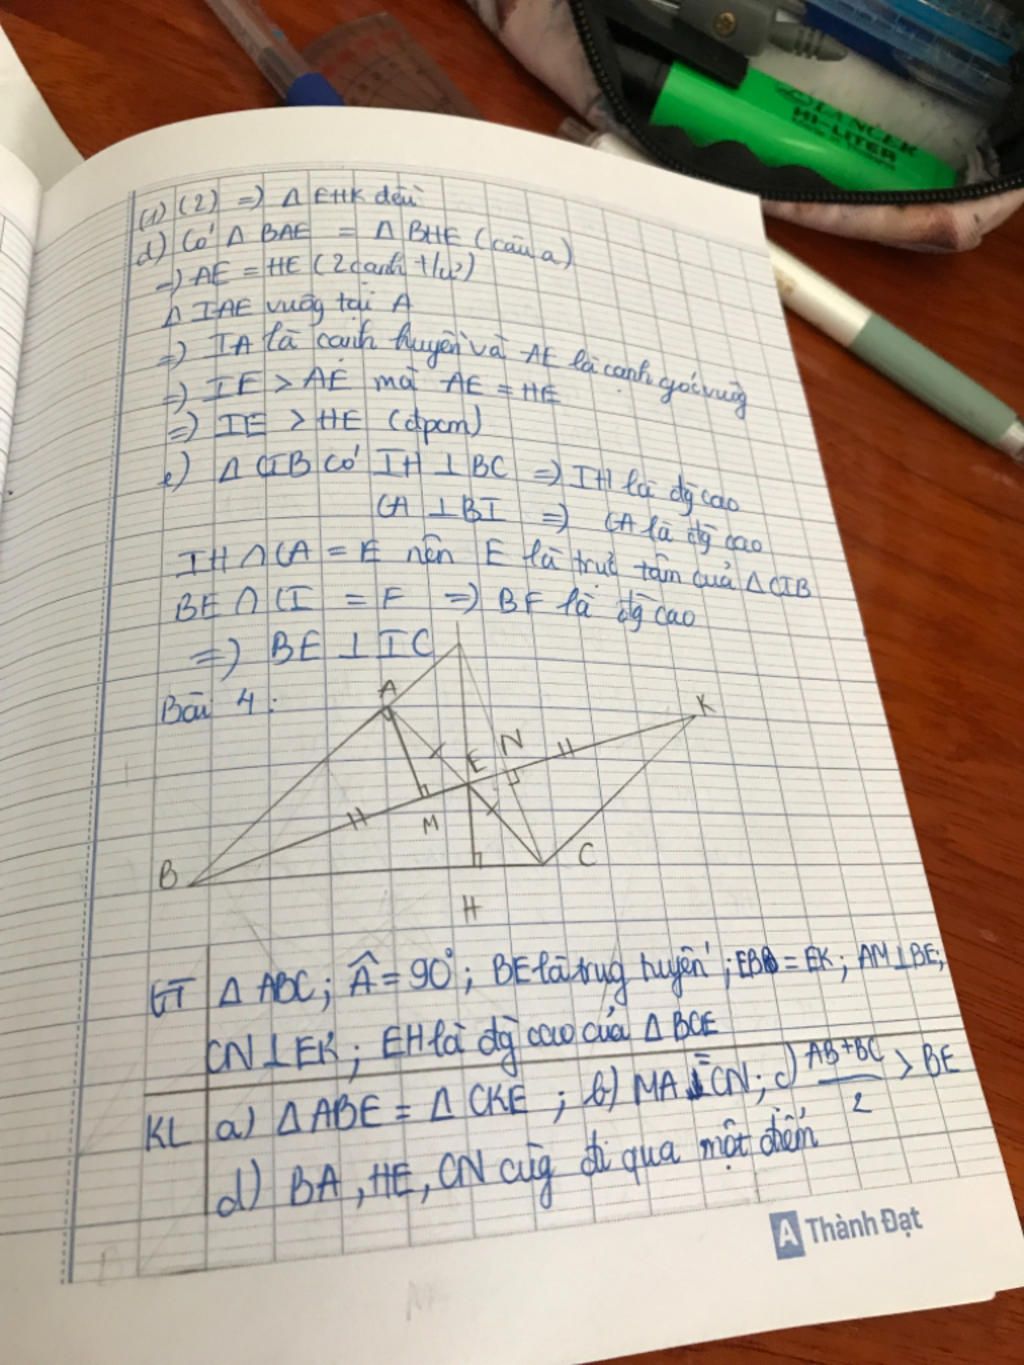 LANCER
HI-LITER
(1) (2) => Δ EHK đều
d) Có Δ BAE = Δ BHE (câu a)
=> AE = HE (2 cạnh t/ư)
Δ IAE vuôg tại A
=> IA là cạnh huyền và AE là cạnh góc vuôg
=> IE > AE mà AE = HE
=> IE > HE (đpcm)
e) Δ CIB có IH ⊥ BC => IH là đg cao
CA ⊥ BI => CA là đg cao
IH ∩ CA = E nên E là trực tâm của Δ CIB
BE ∩ CI = F => BF là đg cao
=> BE ⊥ IC
Bài 4:
A
K
N
E
M
B
C
H
GT Δ ABC; Â = 90°; BE là trug tuyến; EB = EK; AM ⊥ BE;
CN ⊥ EK; EH là đg cao của Δ BCE
KL a) Δ ABE = Δ CKE; b) MA = CN; c) (AB + BC)/2 > BE
d) BA, HE, CN cùg đi qua một điểm
A Thành Đạt